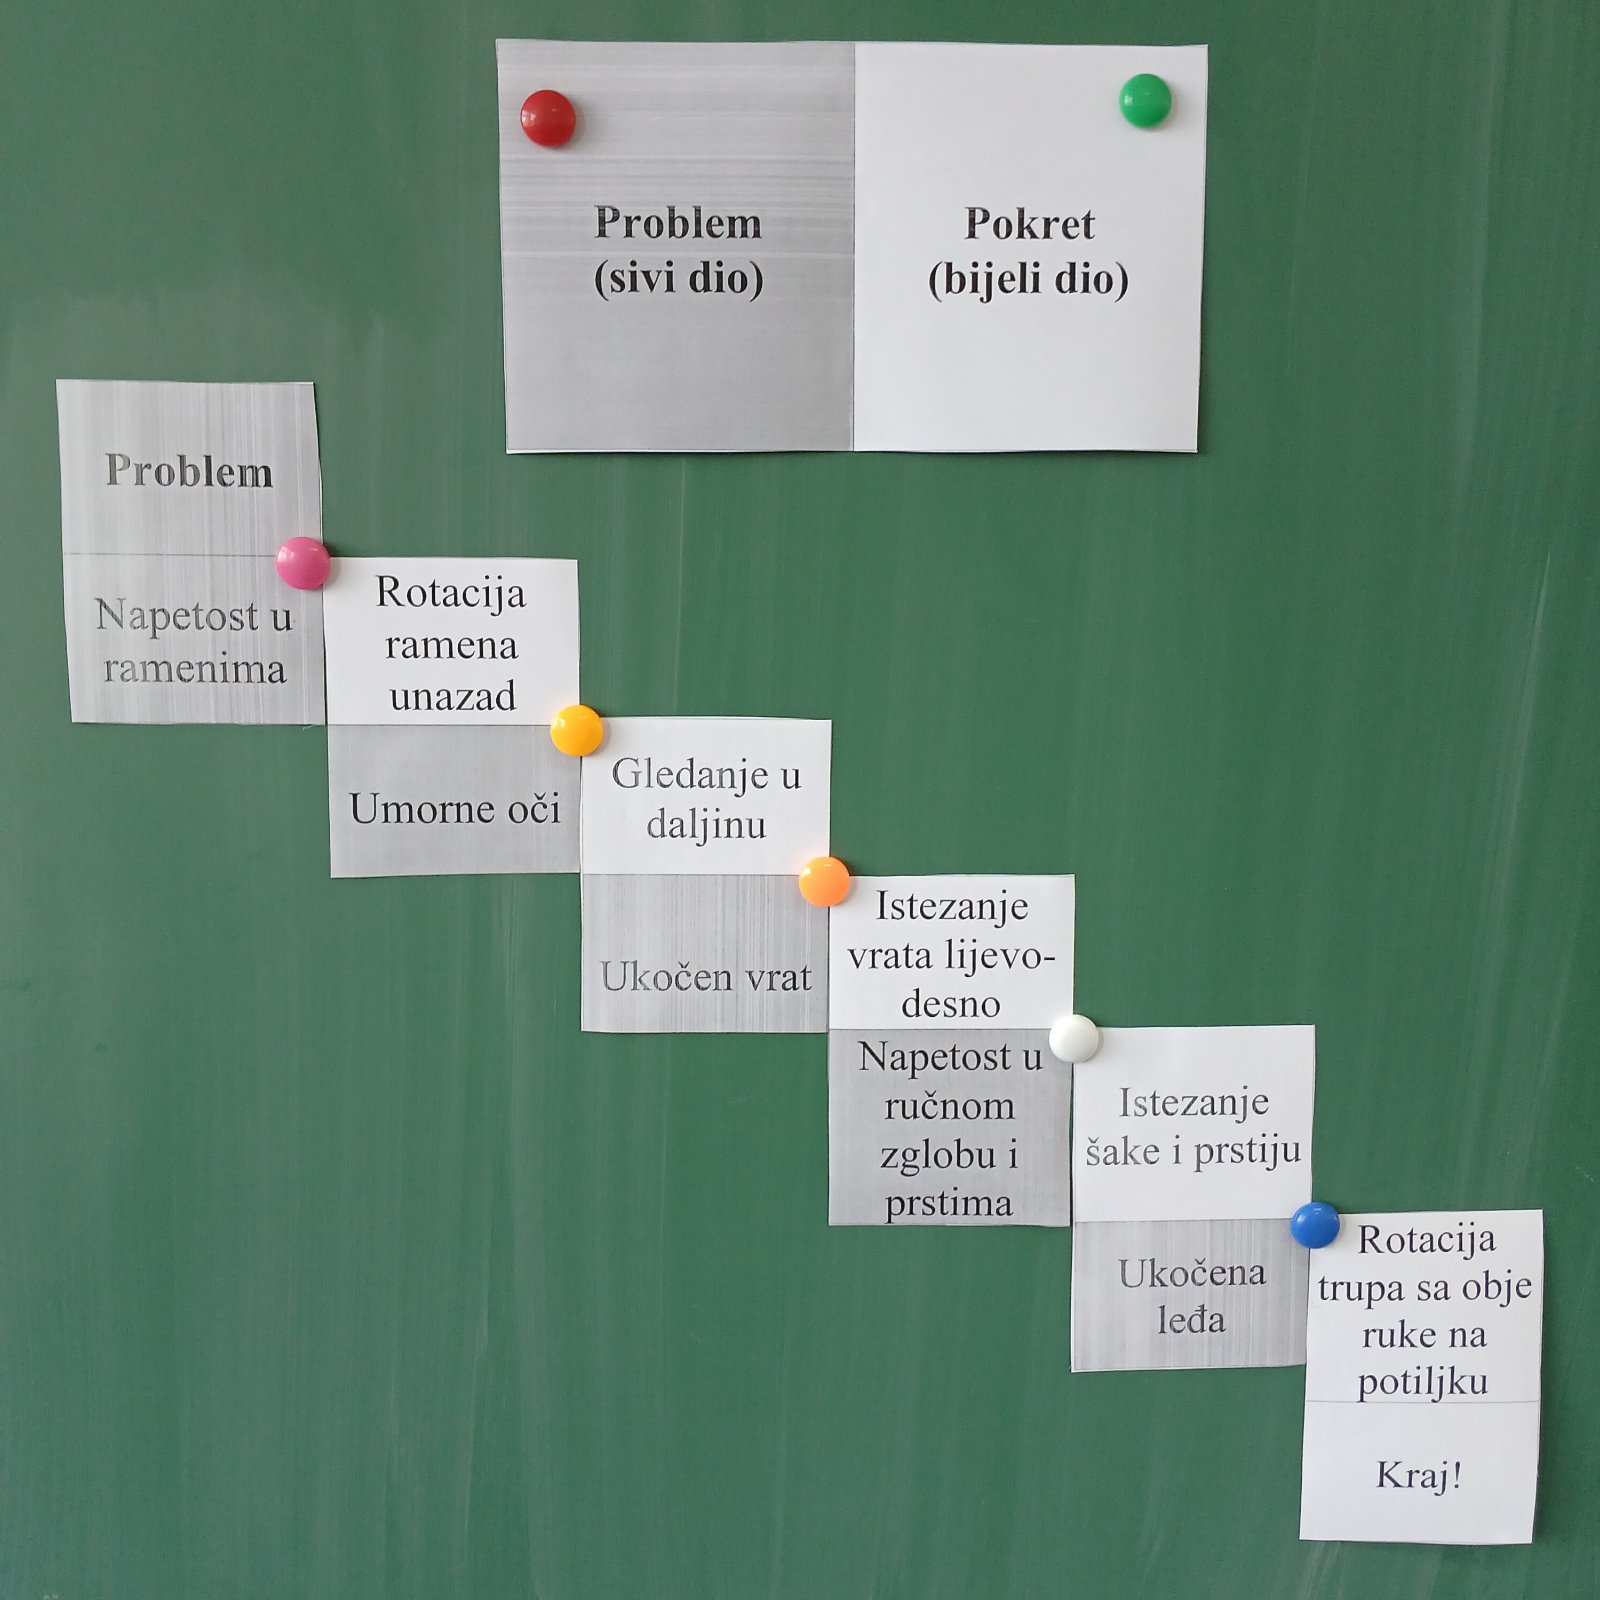 Problem
(sivi dio)
Pokret
(bijeli dio)
Problem
Napetost u
ramenima
Rotacija
ramena
unazad
Umorne oči
Gledanje u
daljinu
Ukočen vrat
Istezanje
vrata lijevo-
desno
Napetost u
ručnom
zglobu i
prstima
Istezanje
šake i prstiju
Ukočena
leđa
Rotacija
trupa sa obje
ruke na
potiljku
Kraj!